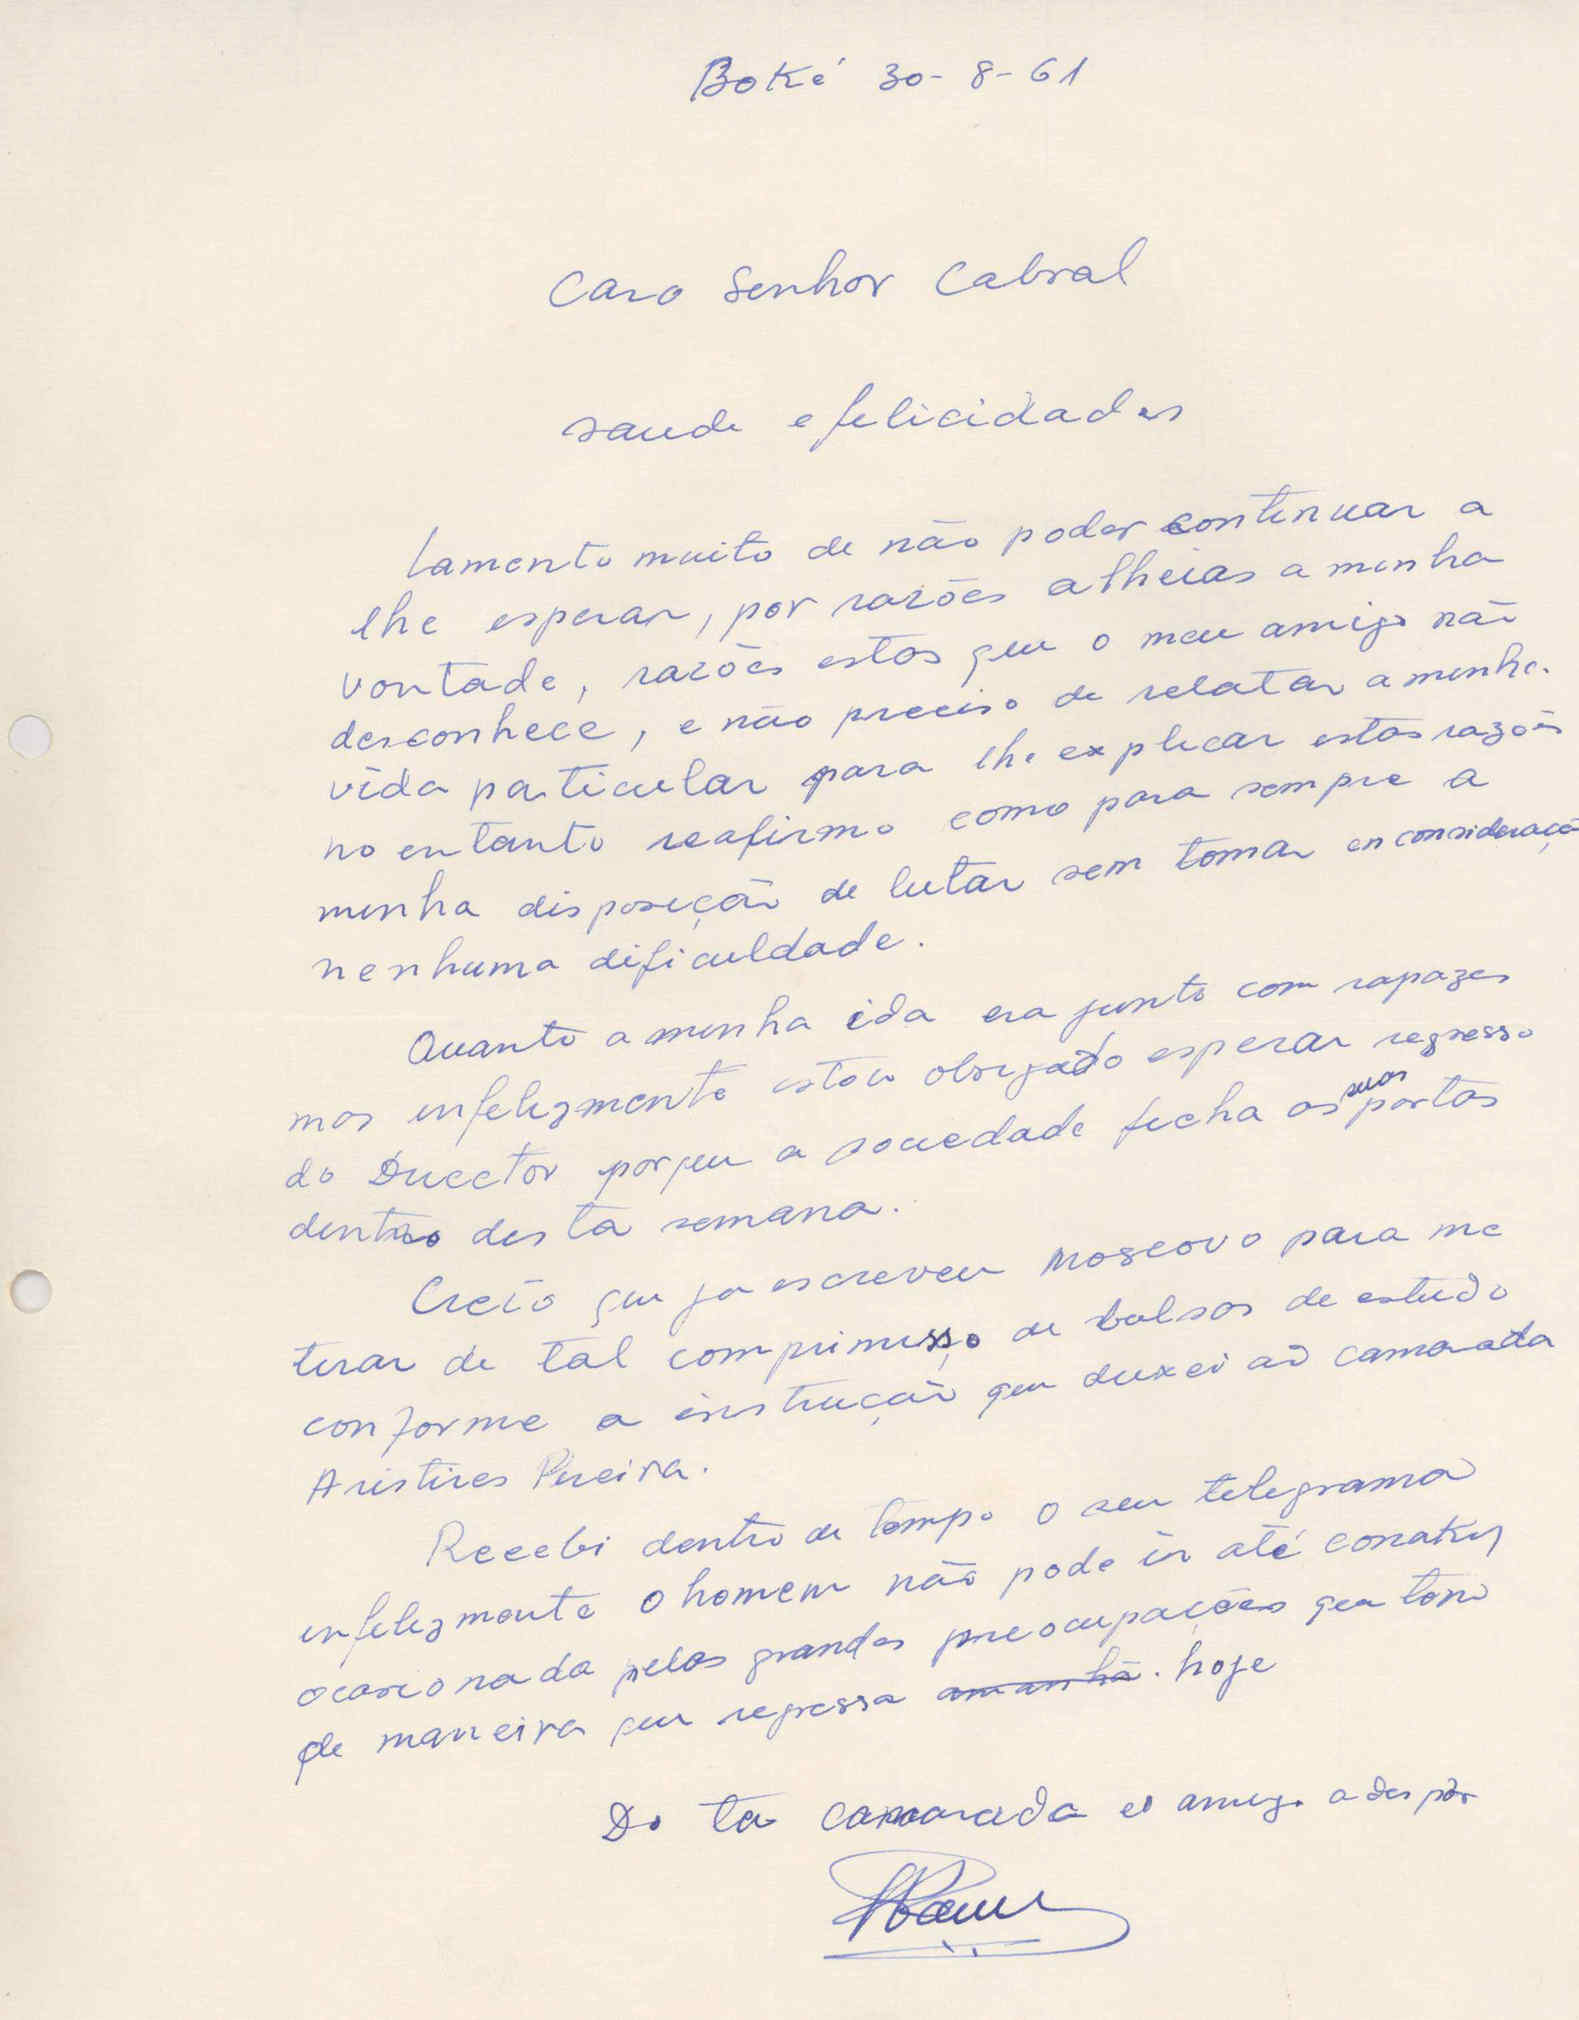 Boké 30-8-61
Caro Senhor Cabral
saude e felicidades
Lamento muito de não poder continuar a
lhe esperar, por razões alheias a minha
vontade, razões estas que o meu amigo não
desconhece, e não preciso de relatar a minha
vida particular para lhe explicar estas razões
no entanto reafirmo como para sempre a
minha disposição de lutar sem tomar en consideração
nenhuma dificuldade.
Quanto a minha ida era junto com rapazes
mas infelizmente estou obrigado esperar regresso
do Director porque a sociedade fecha as suas portas
dentro desta semana.
Creio que ja escreveu Moscovo para me
tirar de tal comprimisso de bolsas de estudo
conforme a instrução que deixei ao camarada
Aristires Pereira.
Recebi dentro de tempo o seu telegrama
infelizmente o homem não pode ir até conakry
ocasionada pelas grandes preocupações que tem
de maneira que regressa amanhã. hoje
Do teu camarada e amigo a dispôr